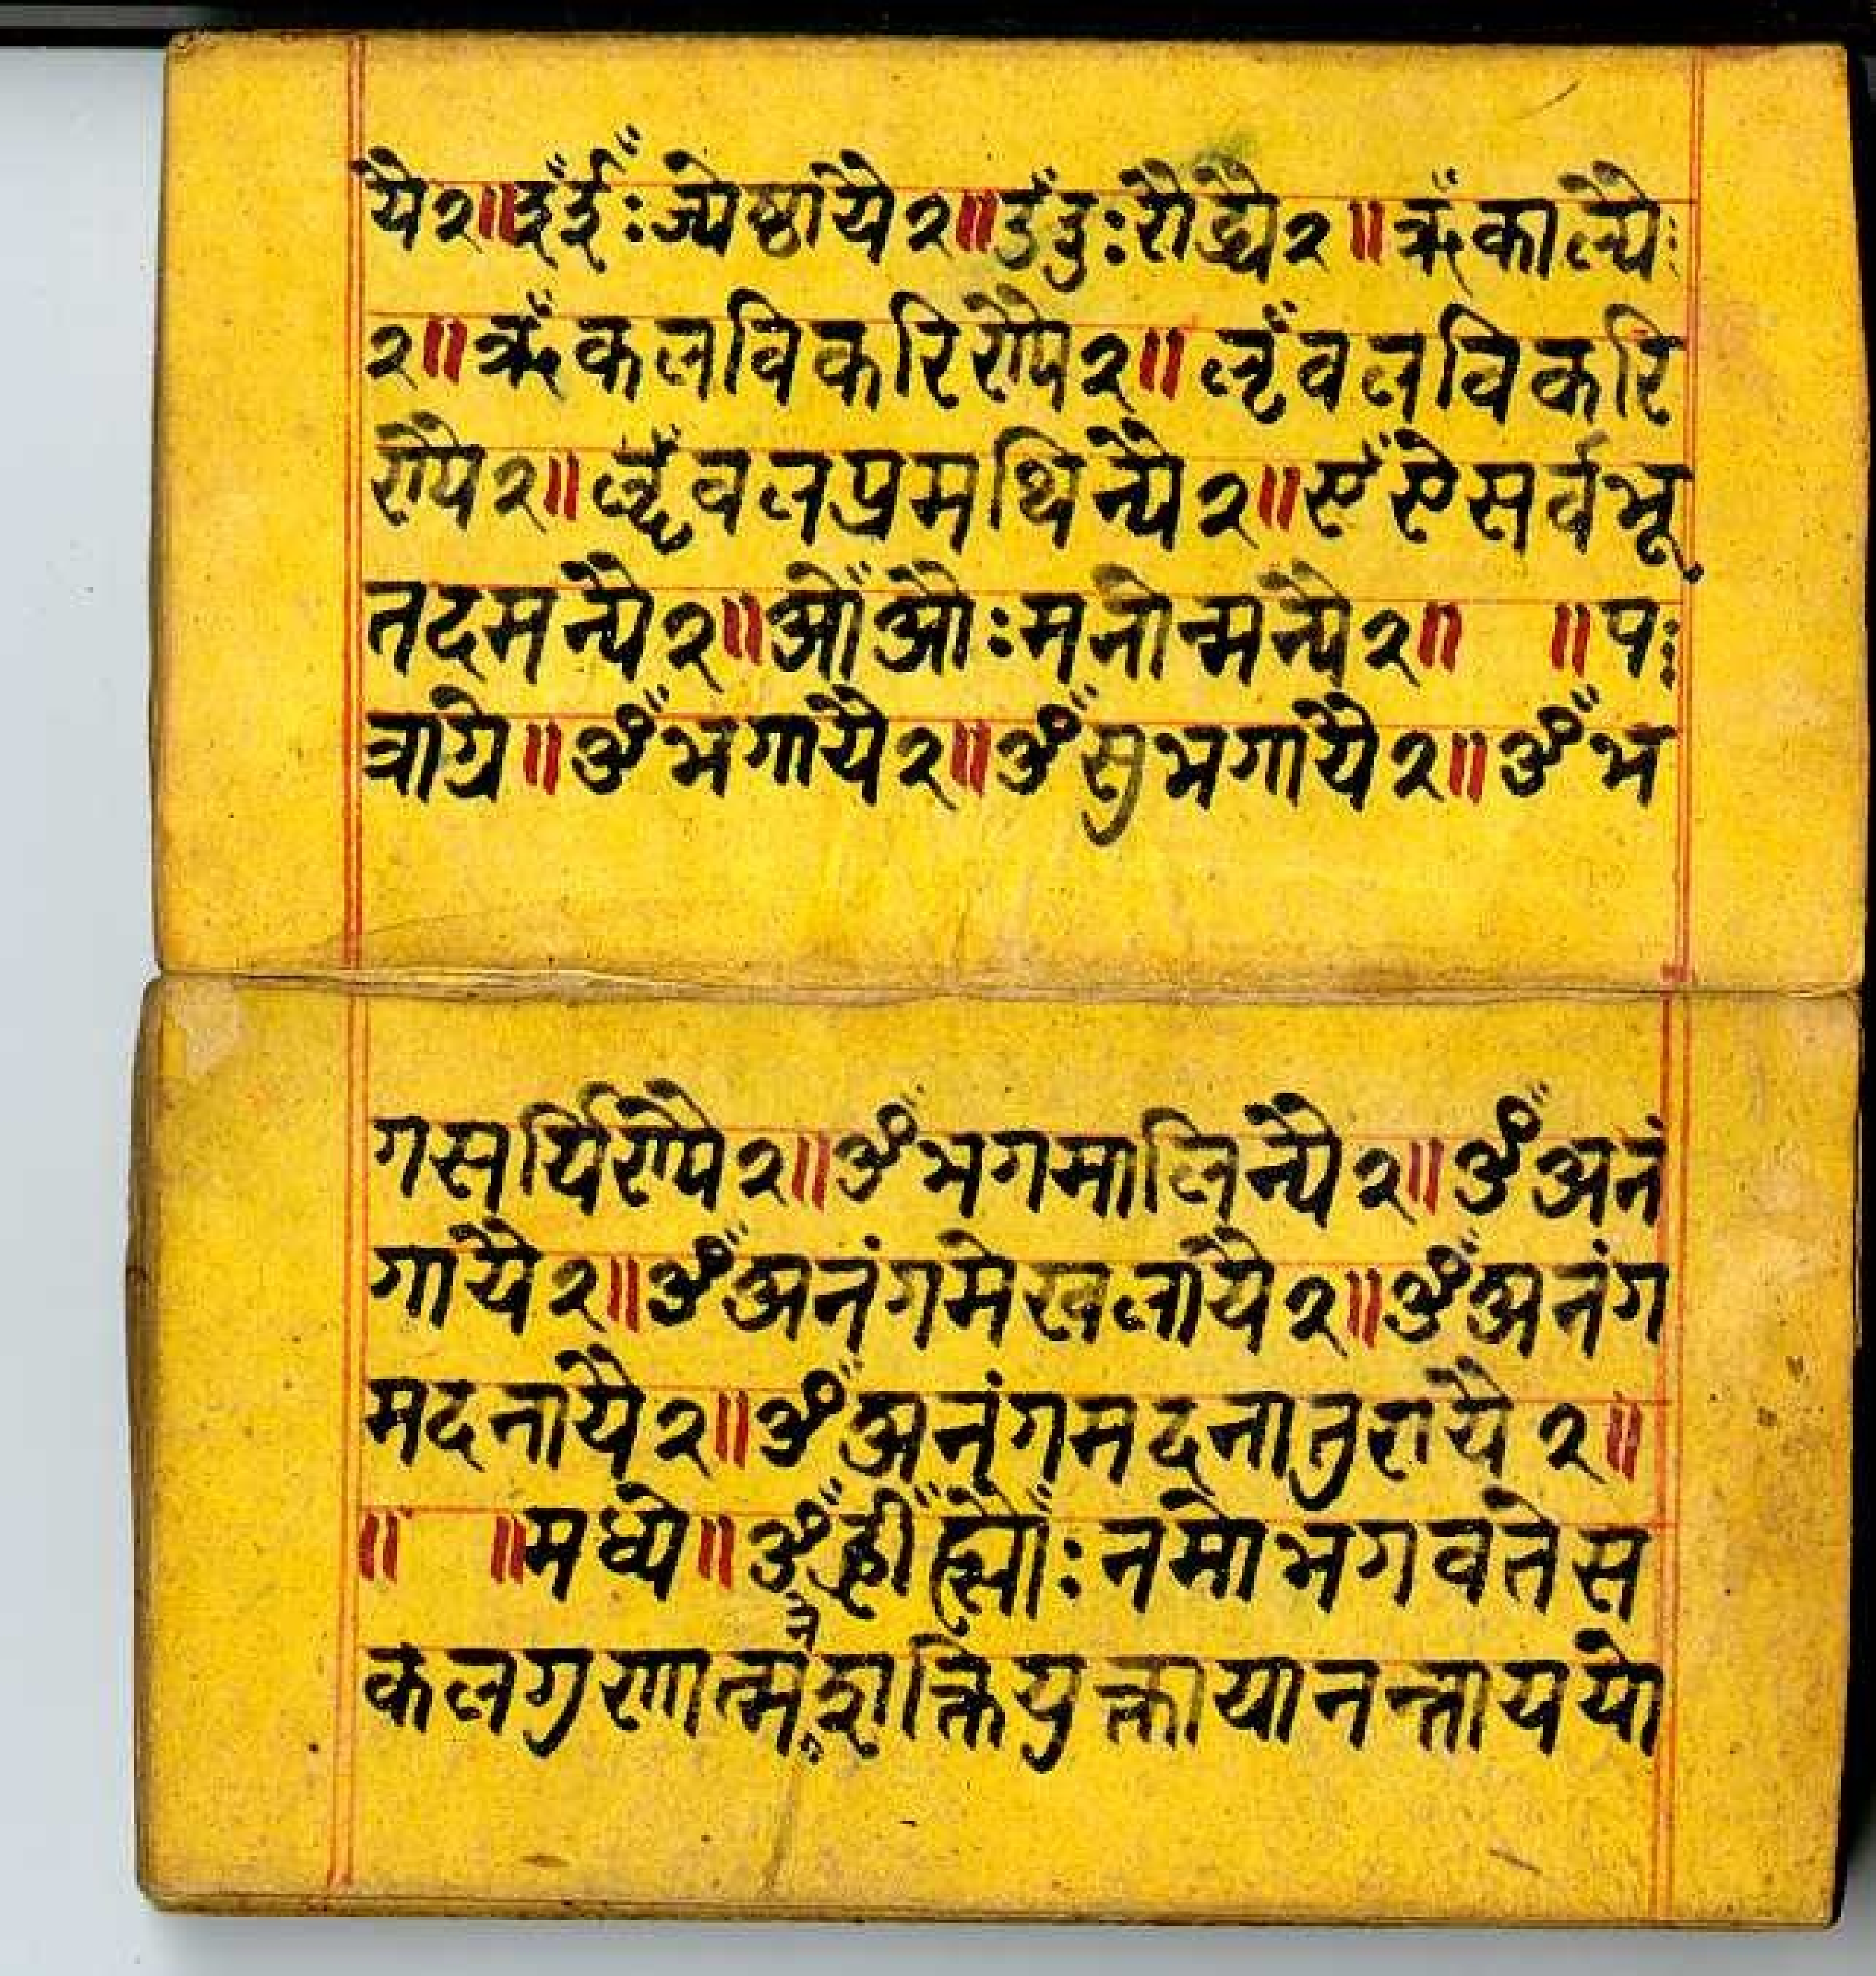 यै२॥इँईँ:ज्येष्ठायै२॥उँउु:रौद्र्यै२॥ऋँकाल्यै
२॥ॠँकलविकरिण्यै२॥ऌँवलविकरि
ण्यै२॥ॡँवलप्रमथिन्यै२॥एँऐसर्वभू
तदमन्यै२॥ओँऔ:मनोन्मन्यै२॥ ॥प
त्राग्रे॥ॐभगायै२॥ॐसुभगायै२॥ॐभ
गसर्यिण्यै२॥ॐभगमालिन्यै२॥ॐअनं
गायै२॥ॐअनंगमेखलायै२॥ॐअनंग
मदनायै२॥ॐअनंगमदनातुरायै२॥
॥ ॥मध्ये॥ॐह्रीँह्सौँ:नमोभगवतेस
कलगुणात्मनेशक्तियुक्तायानन्ताययो